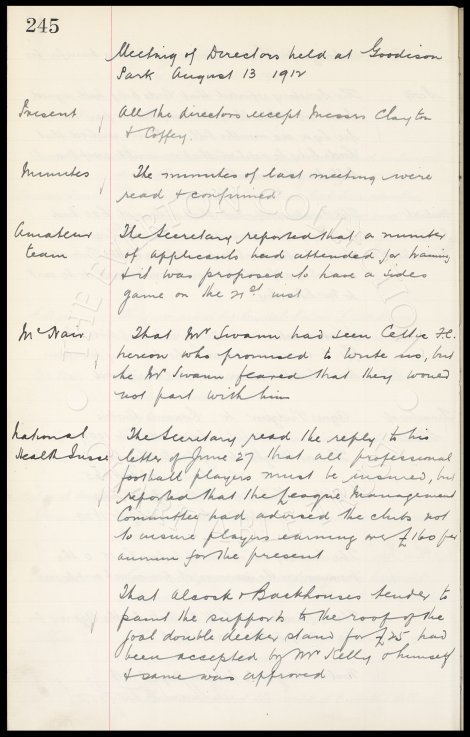 245
Meeting of Directors held at Goodison
Park August 13 1912
Present
All the directors except Messrs Clayton
& Coffey.
Minutes
The minutes of last meeting were
read & confirmed
Amateur
team
The Secretary reported that a number
of applicants had attended for training
& it was proposed to have a sides
game on the 21st inst
McNair
That Mr Swann had seen Celtic F.C.
hereon who promised to write us, but
he Mr Swann feared that they would
not part with him
National
Health Insce
The Secretary read the reply to his
letter of June 27 that all professional
football players must be insured, but
reported that the League Management
Committee had advised the clubs not
to insure players earning over £160 per
annum for the present
That Alcock & Backhouses tender to
paint the supports to the roof of the
Goal double decker stand for £25 had
been accepted by Mr Kelly & himself
& same was approved